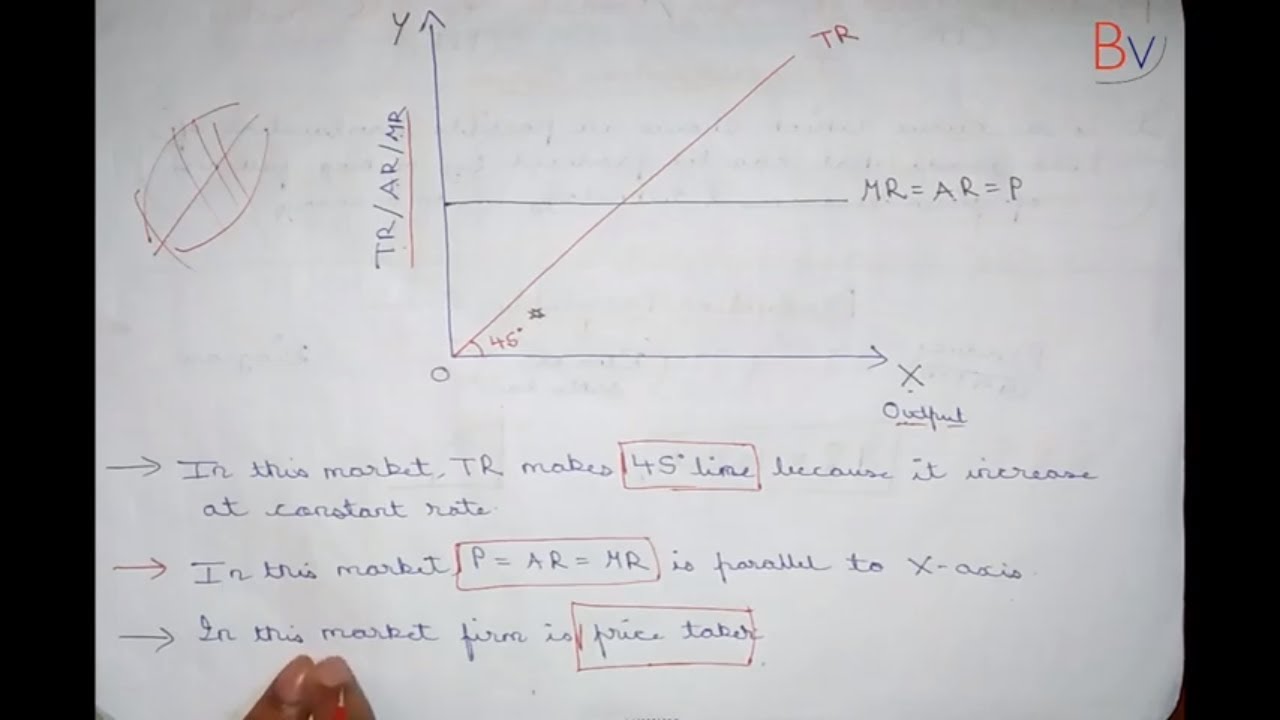 Y
TR
BV
TR/AR/MR
MR = AR = P
45°
O
X
Output
→ In this market, TR makes 45° line because it increase
at constant rate.
→ In this market P = AR = MR is parallel to X-axis.
→ In this market firm is price taker